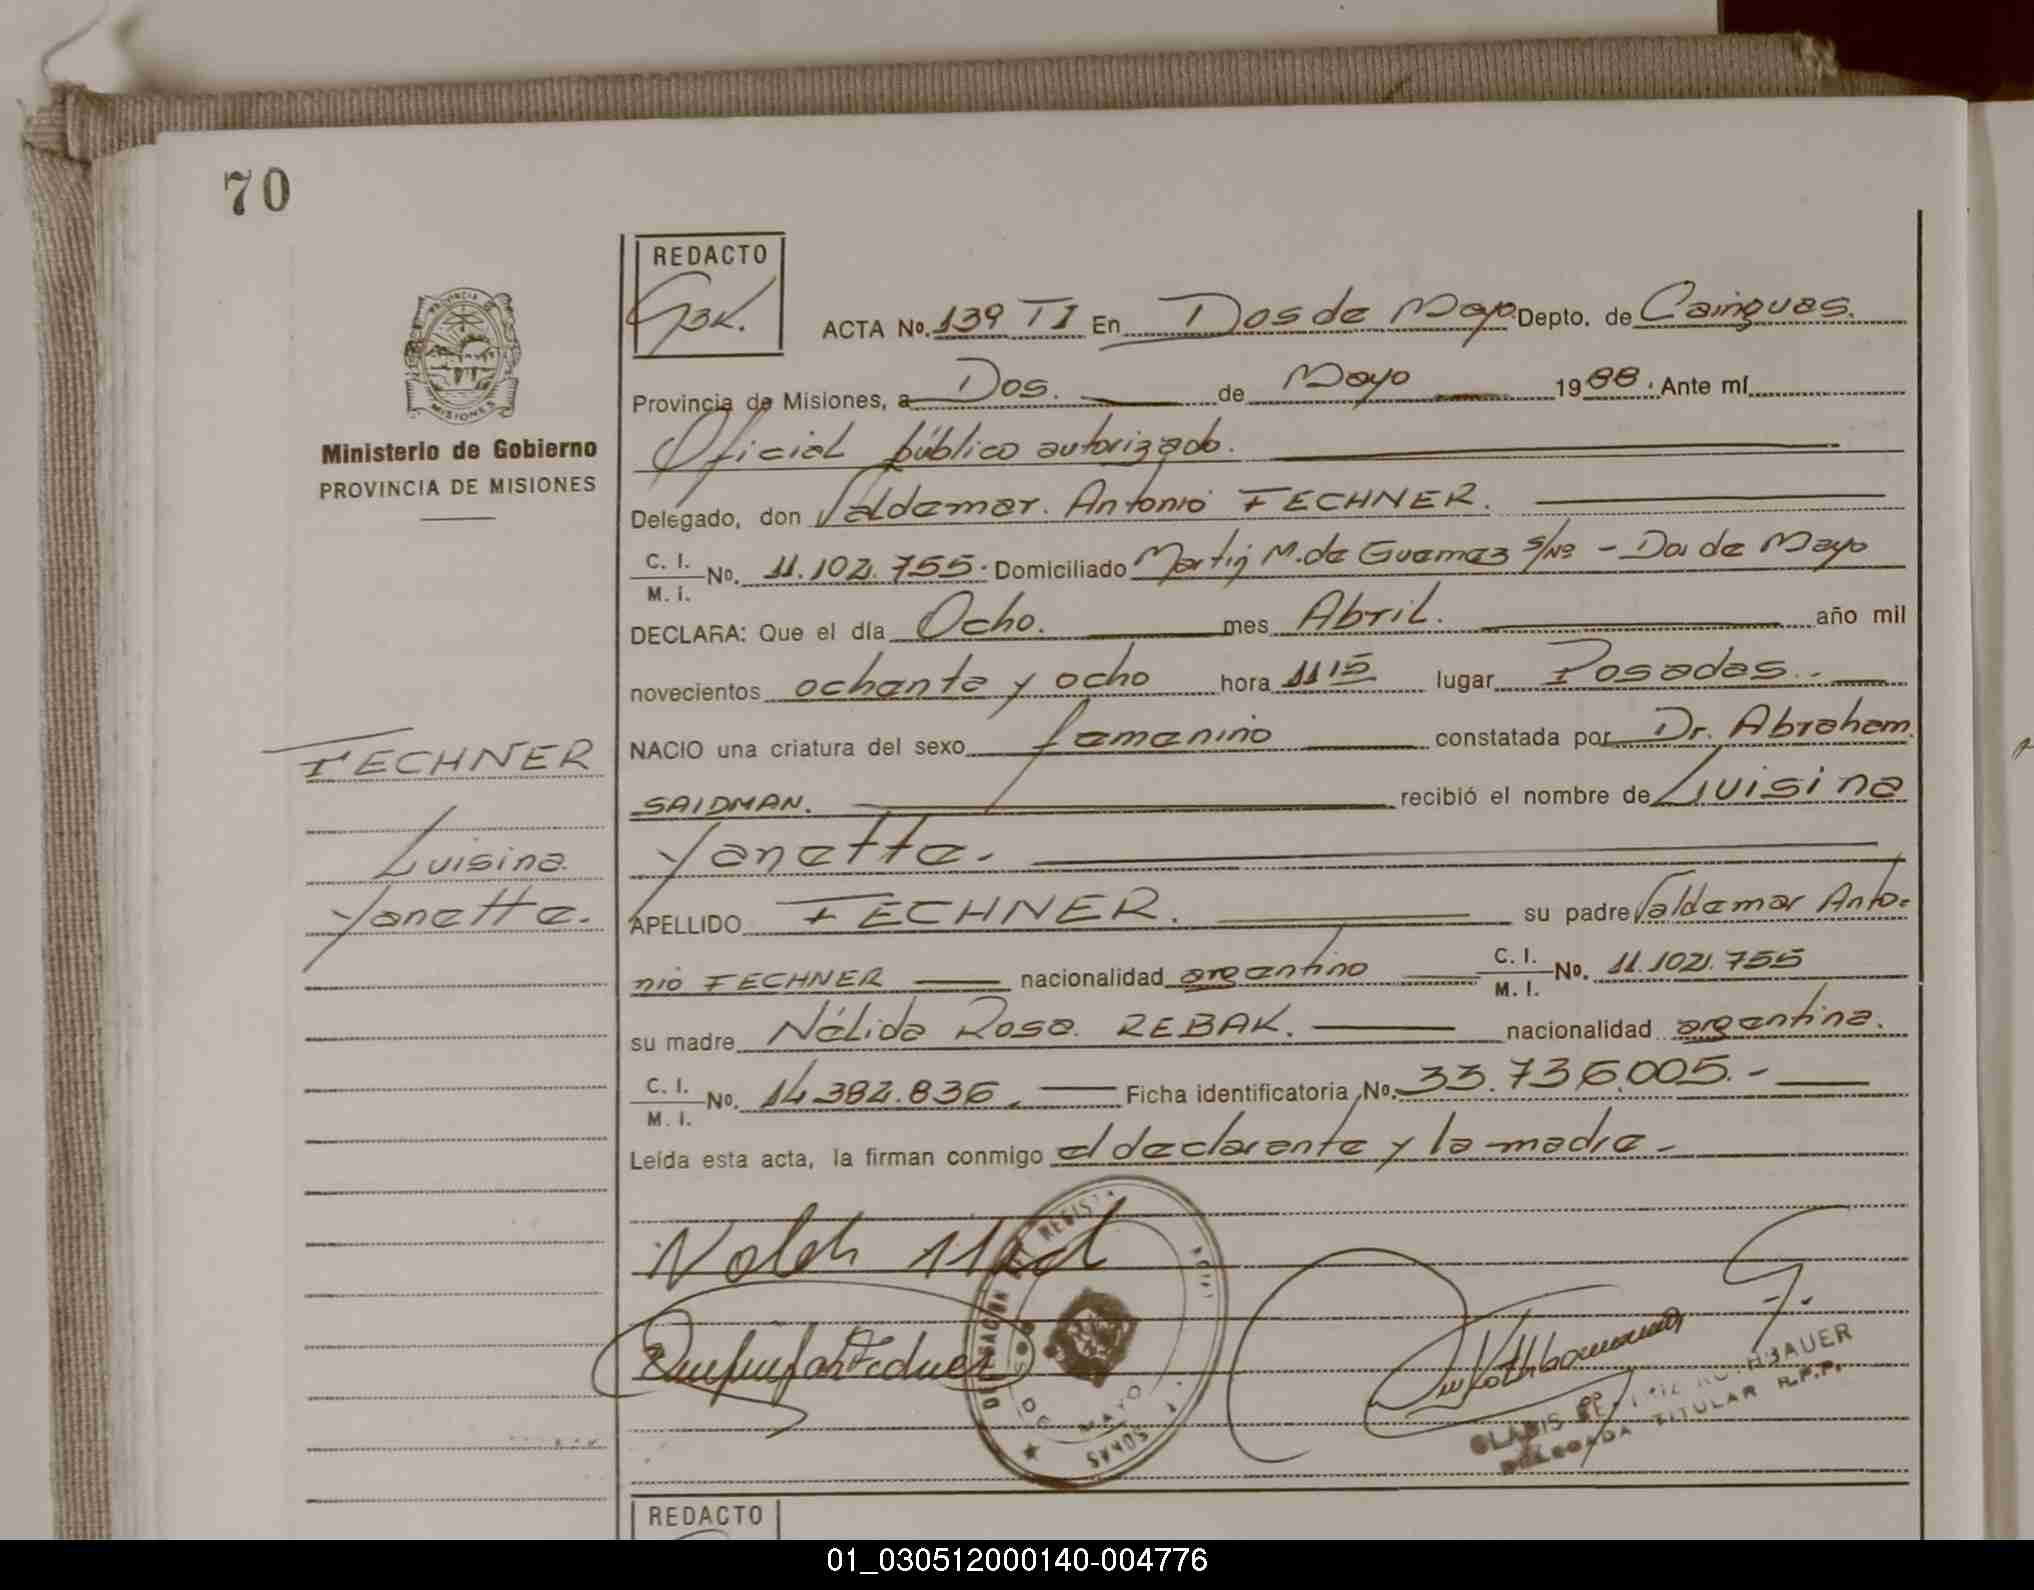 70
REDACTO
GBK.
ACTA No. 139 TI En Dos de Mayo Depto. de Cainguas.
Provincia de Misiones, a Dos. de Mayo 1988. Ante mí
Oficial público autorizado.
Ministerio de Gobierno
PROVINCIA DE MISIONES
Delegado, don Valdemar. Antonio FECHNER.
C. I.
M. I. No. 11.102.755. Domiciliado Martin M. de Guemes s/Nº - Dos de Mayo
DECLARA: Que el día Ocho. mes Abril. año mil
novecientos ochenta y ocho hora 1115 lugar Posadas.
NACIO una criatura del sexo femenino constatada por Dr. Abraham
SAIDMAN. recibió el nombre de Luisina
Yanette.
FECHNER
Luisina
Yanette.
APELLIDO FECHNER. su padre Valdemar Anto-
nio FECHNER nacionalidad argentino C. I.
M. I. No. 11.102.755
su madre Nélida Rosa REBAK. nacionalidad argentina.
C. I.
M. I. No. 14.382.836. Ficha identificatoria No. 33.736.005.-
Leída esta acta, la firman conmigo el declarante y la madre-
DELEGACION DEL REGISTRO
DOS DE MAYO
DELEGADA TITULAR R.P.P.
REDACTO
01_030512000140-004776